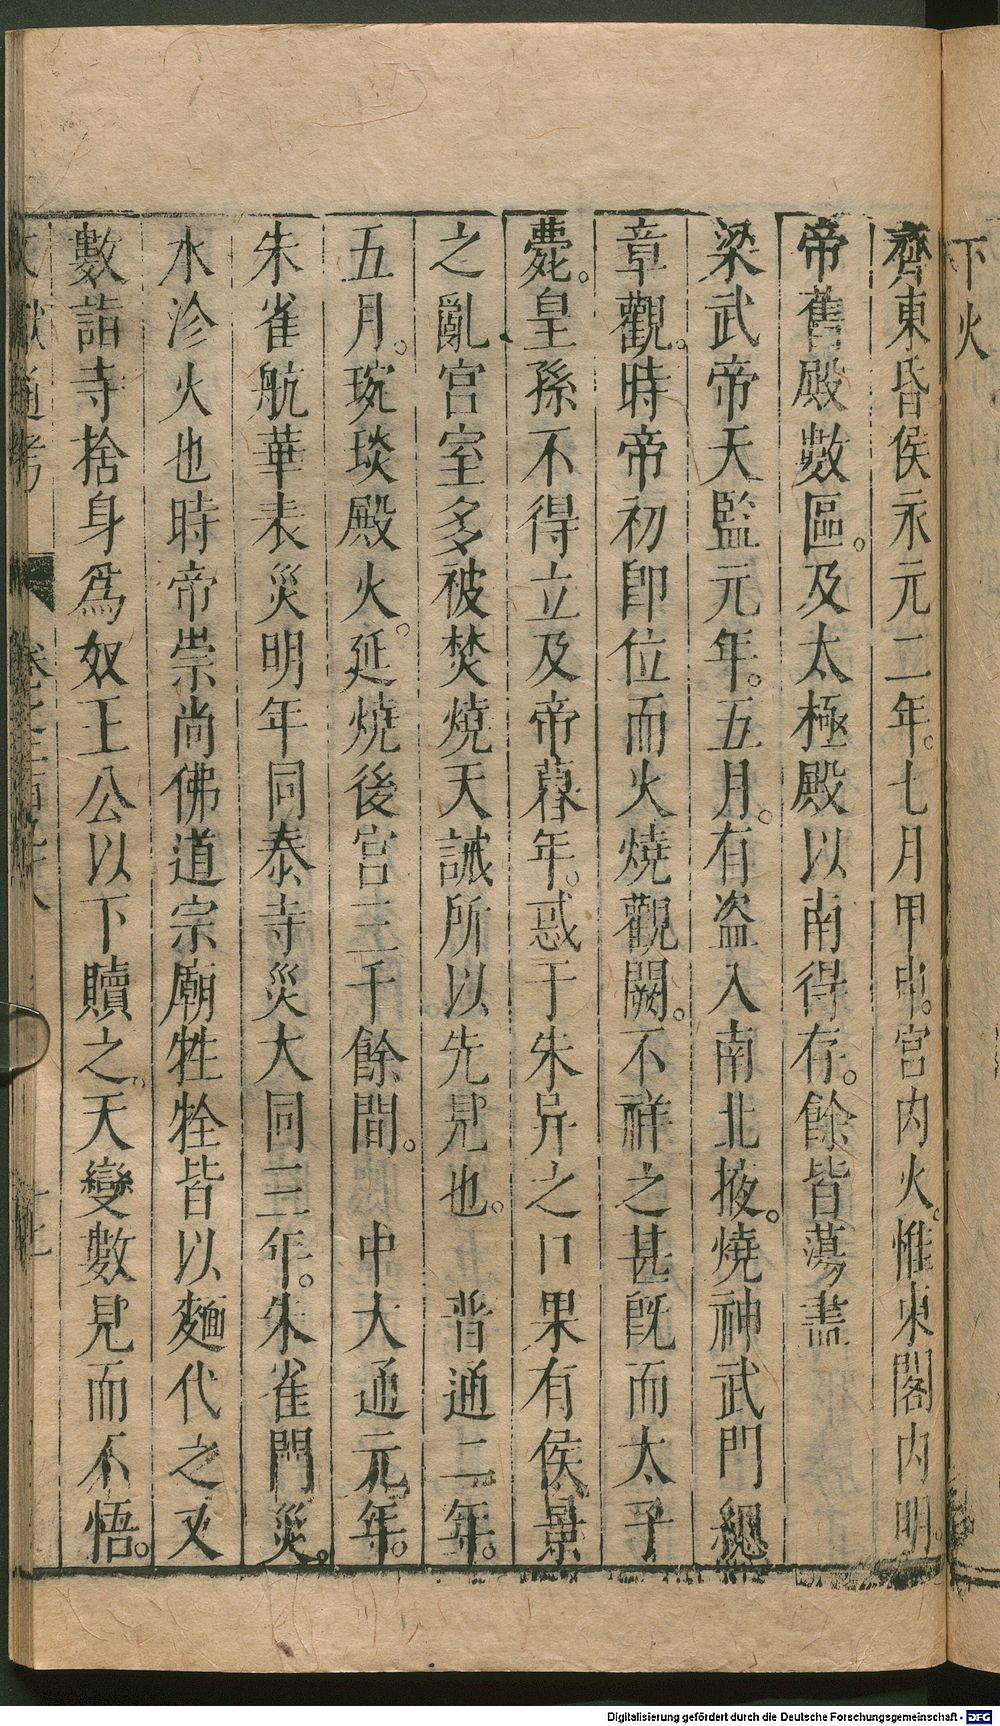 下火
齊東昏侯永元二年。七月甲申。宮內火。惟東閣內明
帝舊殿數區。及太極殿以南得存。餘皆蕩盡
梁武帝天監元年。五月。有盗入南北掖。燒神武門緫
章觀。時帝初卽位而火燒觀闕。不祥之甚旣而太子
薨。皇孫不得立及帝暮年。惑于朱异之口果有侯景
之亂宮室多被焚燒天誡所以先見也。　普通二年。
五月。琬琰殿火。延燒後宮三千餘間。　中大通元年。
朱雀航華表災明年同泰寺災大同三年。朱雀門災。
水沴火也時帝崇尚佛道宗廟牲牷皆以麵代之又
數詣寺捨身爲奴王公以下贖之。天變數見而不悟。
文獻通考 卷之三百九十八
Digitalisierung gefördert durch die Deutsche Forschungsgemeinschaft - DFG